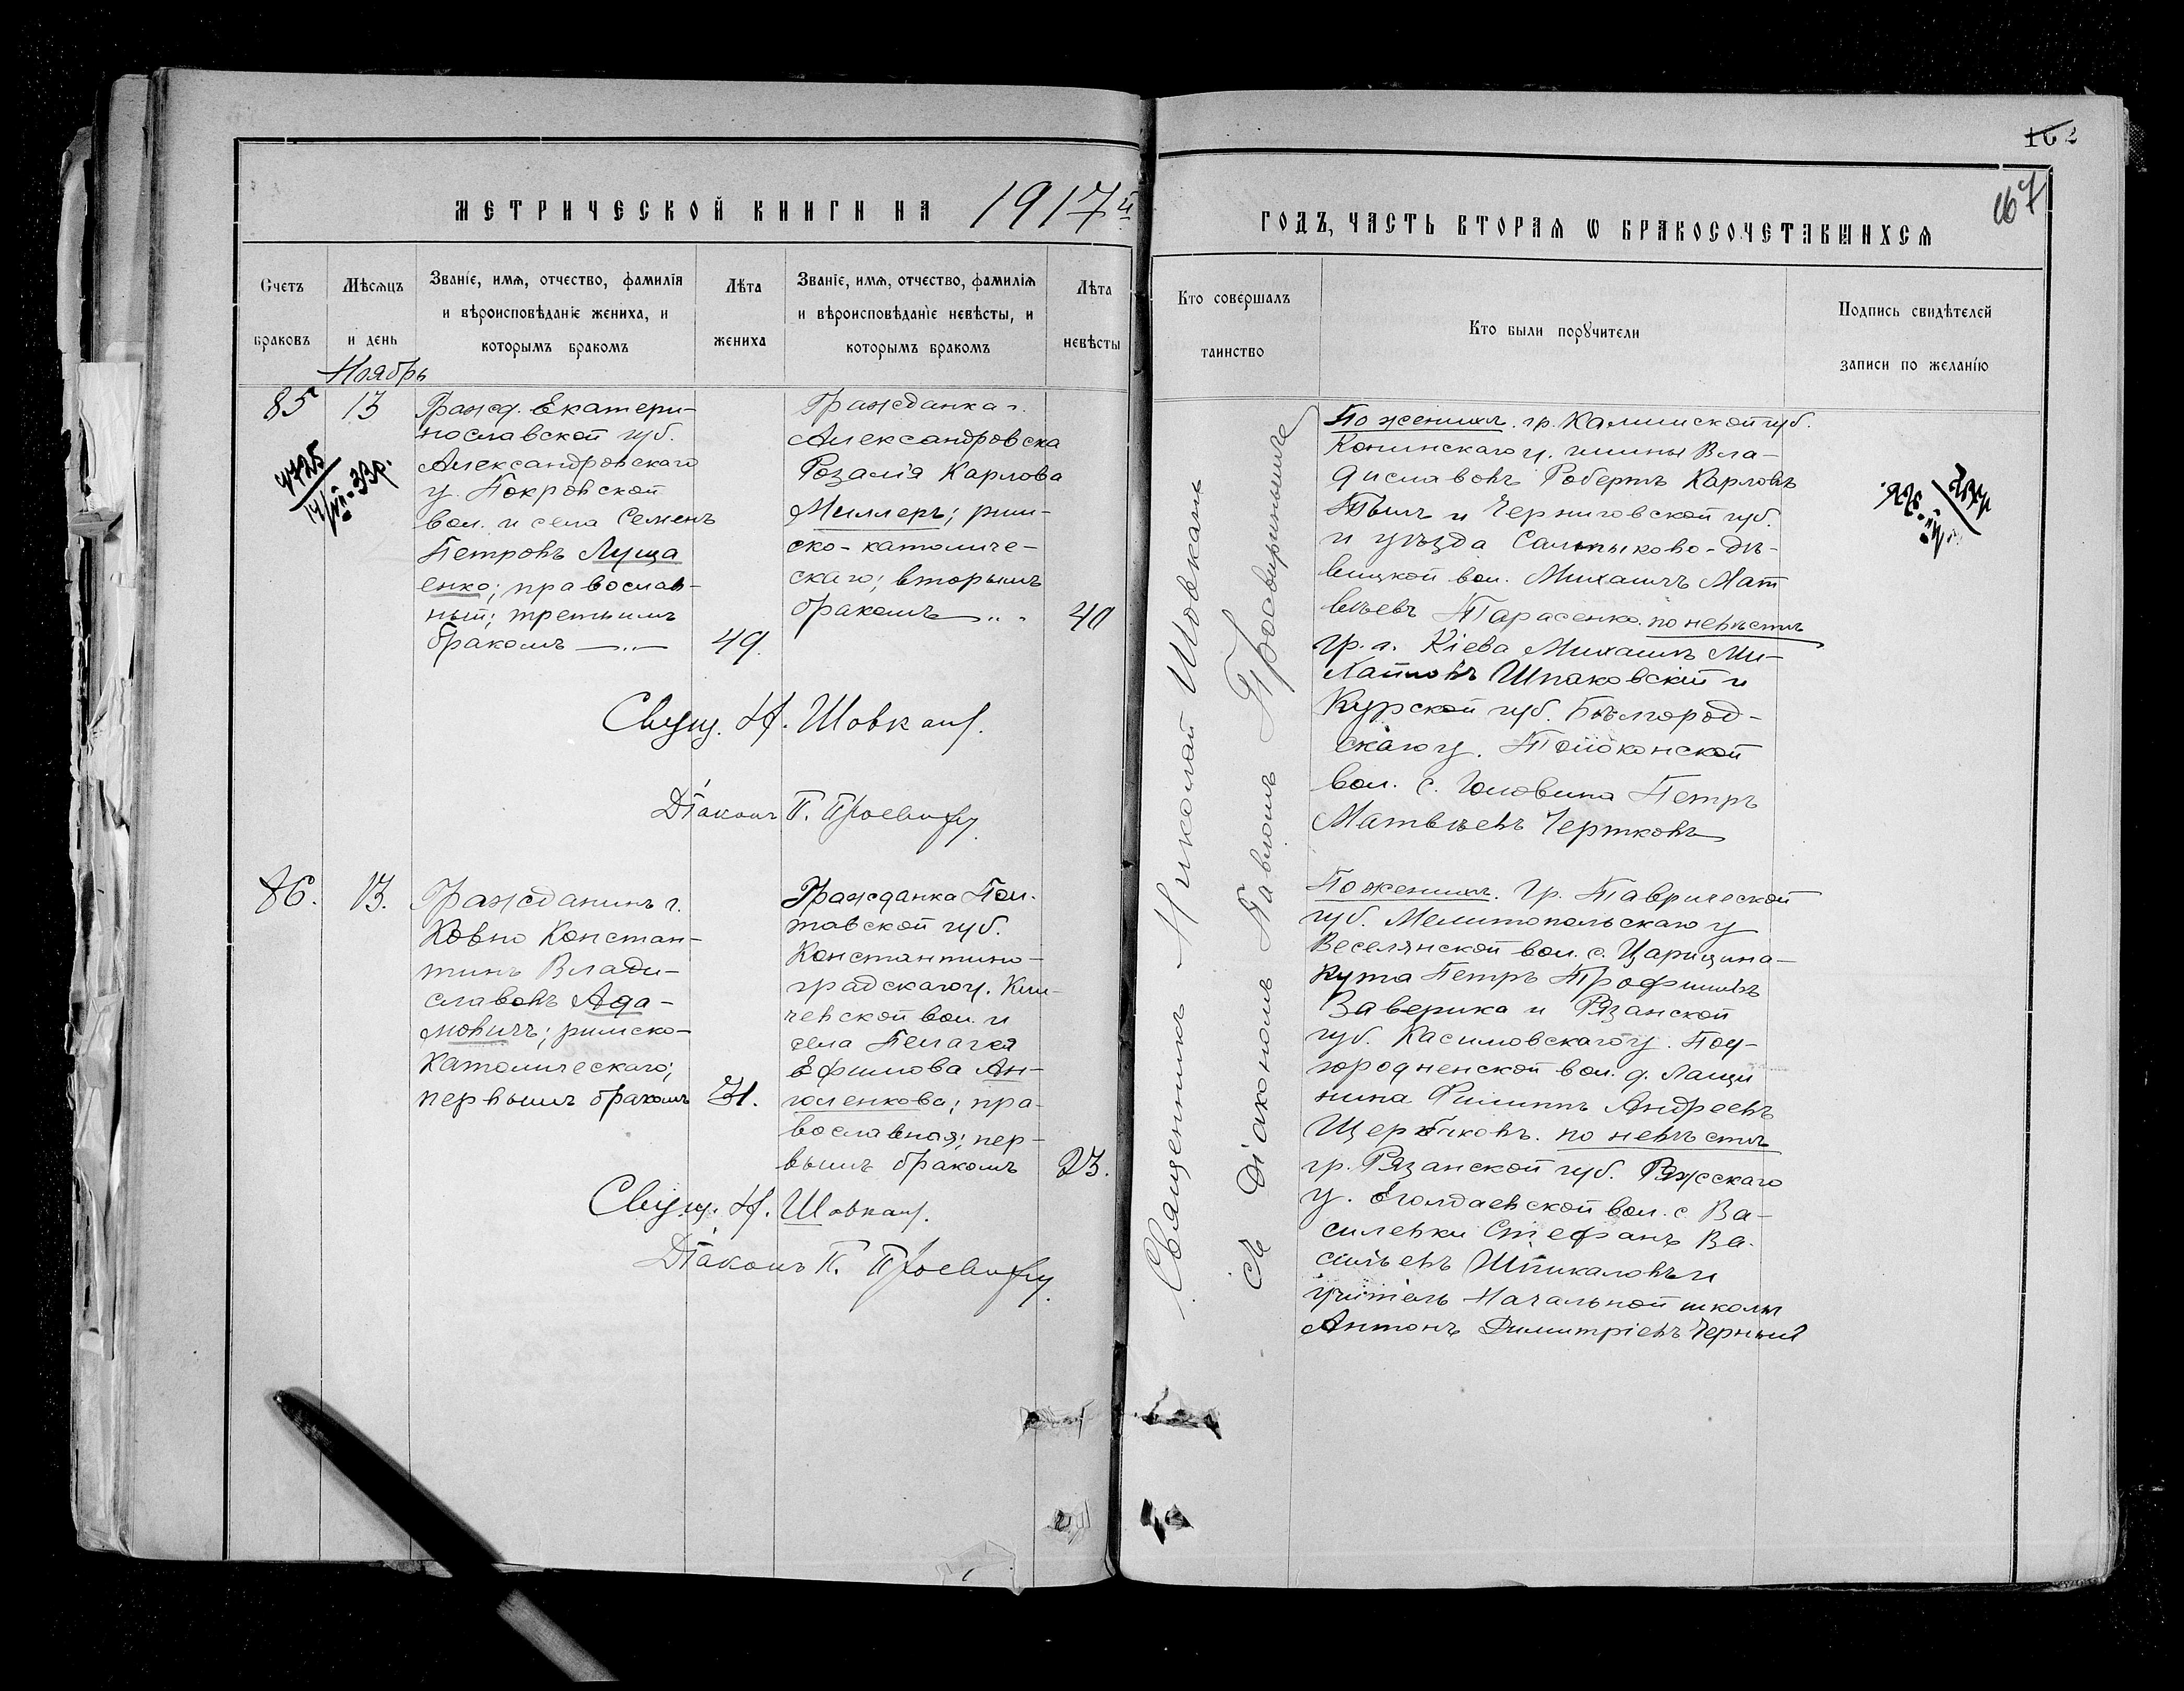 162
167
МЕТРИЧЕСКОЙ КНИГИ НА 1917й
ГОДЪ, ЧАСТЬ ВТОРАЯ Ѡ БРАКОСОЧЕТАВШИХСЯ
Счетъ браковъ
Мѣсяцъ и день
Званіе, имя, отчество, фамилія
и вѣроисповѣданіе жениха, и
которымъ бракомъ
Лѣта жениха
Званіе, имя, отчество, фамилія
и вѣроисповѣданіе невѣсты, и
которымъ бракомъ
Лѣта невѣсты
Кто совершалъ таинство
Кто были поручители
Подпись свидѣтелей
записи по желанію
Ноябрь
85
13
4725
Гражд. Екатери-
нославской губ.
Александровскаго
у. Покровской
вол. и села Семенъ
Петровъ Луща
енко; православ-
ный; третьимъ
бракомъ
49.
Гражданка г.
Александровска
Розалія Карлова
Миллеръ; рим-
ско-католиче-
скаго; вторымъ
бракомъ
40
Свящ. Н. Шовкан.
Діаконъ П. Просвир
Священникъ Николай Шовканъ
съ Діакономъ Павломъ Просвирнинымъ
По женихѣ. гр. Калишской губ.
Конинскаго у. гмины Вла-
диславовъ Робертъ Карловъ
и Черниговской губ.
и уѣзда Салтыково-Дѣ-
вицкой вол. Михаилъ Мат
вѣевъ Тарасенко. по невѣстѣ
гр. г. Кіева Михаилъ Ми-
хайловъ Шпаковскій и
Курской губ. Бѣлгород-
скаго у. Толоконской
вол. с. Головина Петръ
Матвѣевъ Чертковъ
86.
13.
Гражданинъ г.
Ковно Констан-
тинъ Влади-
славовъ Ада-
мовичъ; римско-
католическаго;
первымъ бракомъ
31.
Гражданка Пол-
тавской губ.
Константино-
градскаго у. Кли-
чевской вол. и
села Пелагея
Ефимова Ан-
голенкова; пра-
вославная; пер-
вымъ бракомъ
23.
Свящ. Н. Шовкан.
Діаконъ П. Просвир
По женихѣ. Гр. Таврической
губ. Мелитопольскаго у
Веселянской вол. с. Царицина-
Кута Петръ Трофимовъ
Заверика и Рязанской
губ. Касимовскаго у. Под-
городненской вол. д. Лащи
нина Филиппъ Андреевъ
Щербаковъ. по невѣстѣ
гр. Рязанской губ. Ряжскаго
у. Еголдаевской вол. с. Ва-
силевки Стефанъ Ва-
сильевъ Шпикаловъ и
учитель Начальной школы
Антонъ Димитріевъ Черный